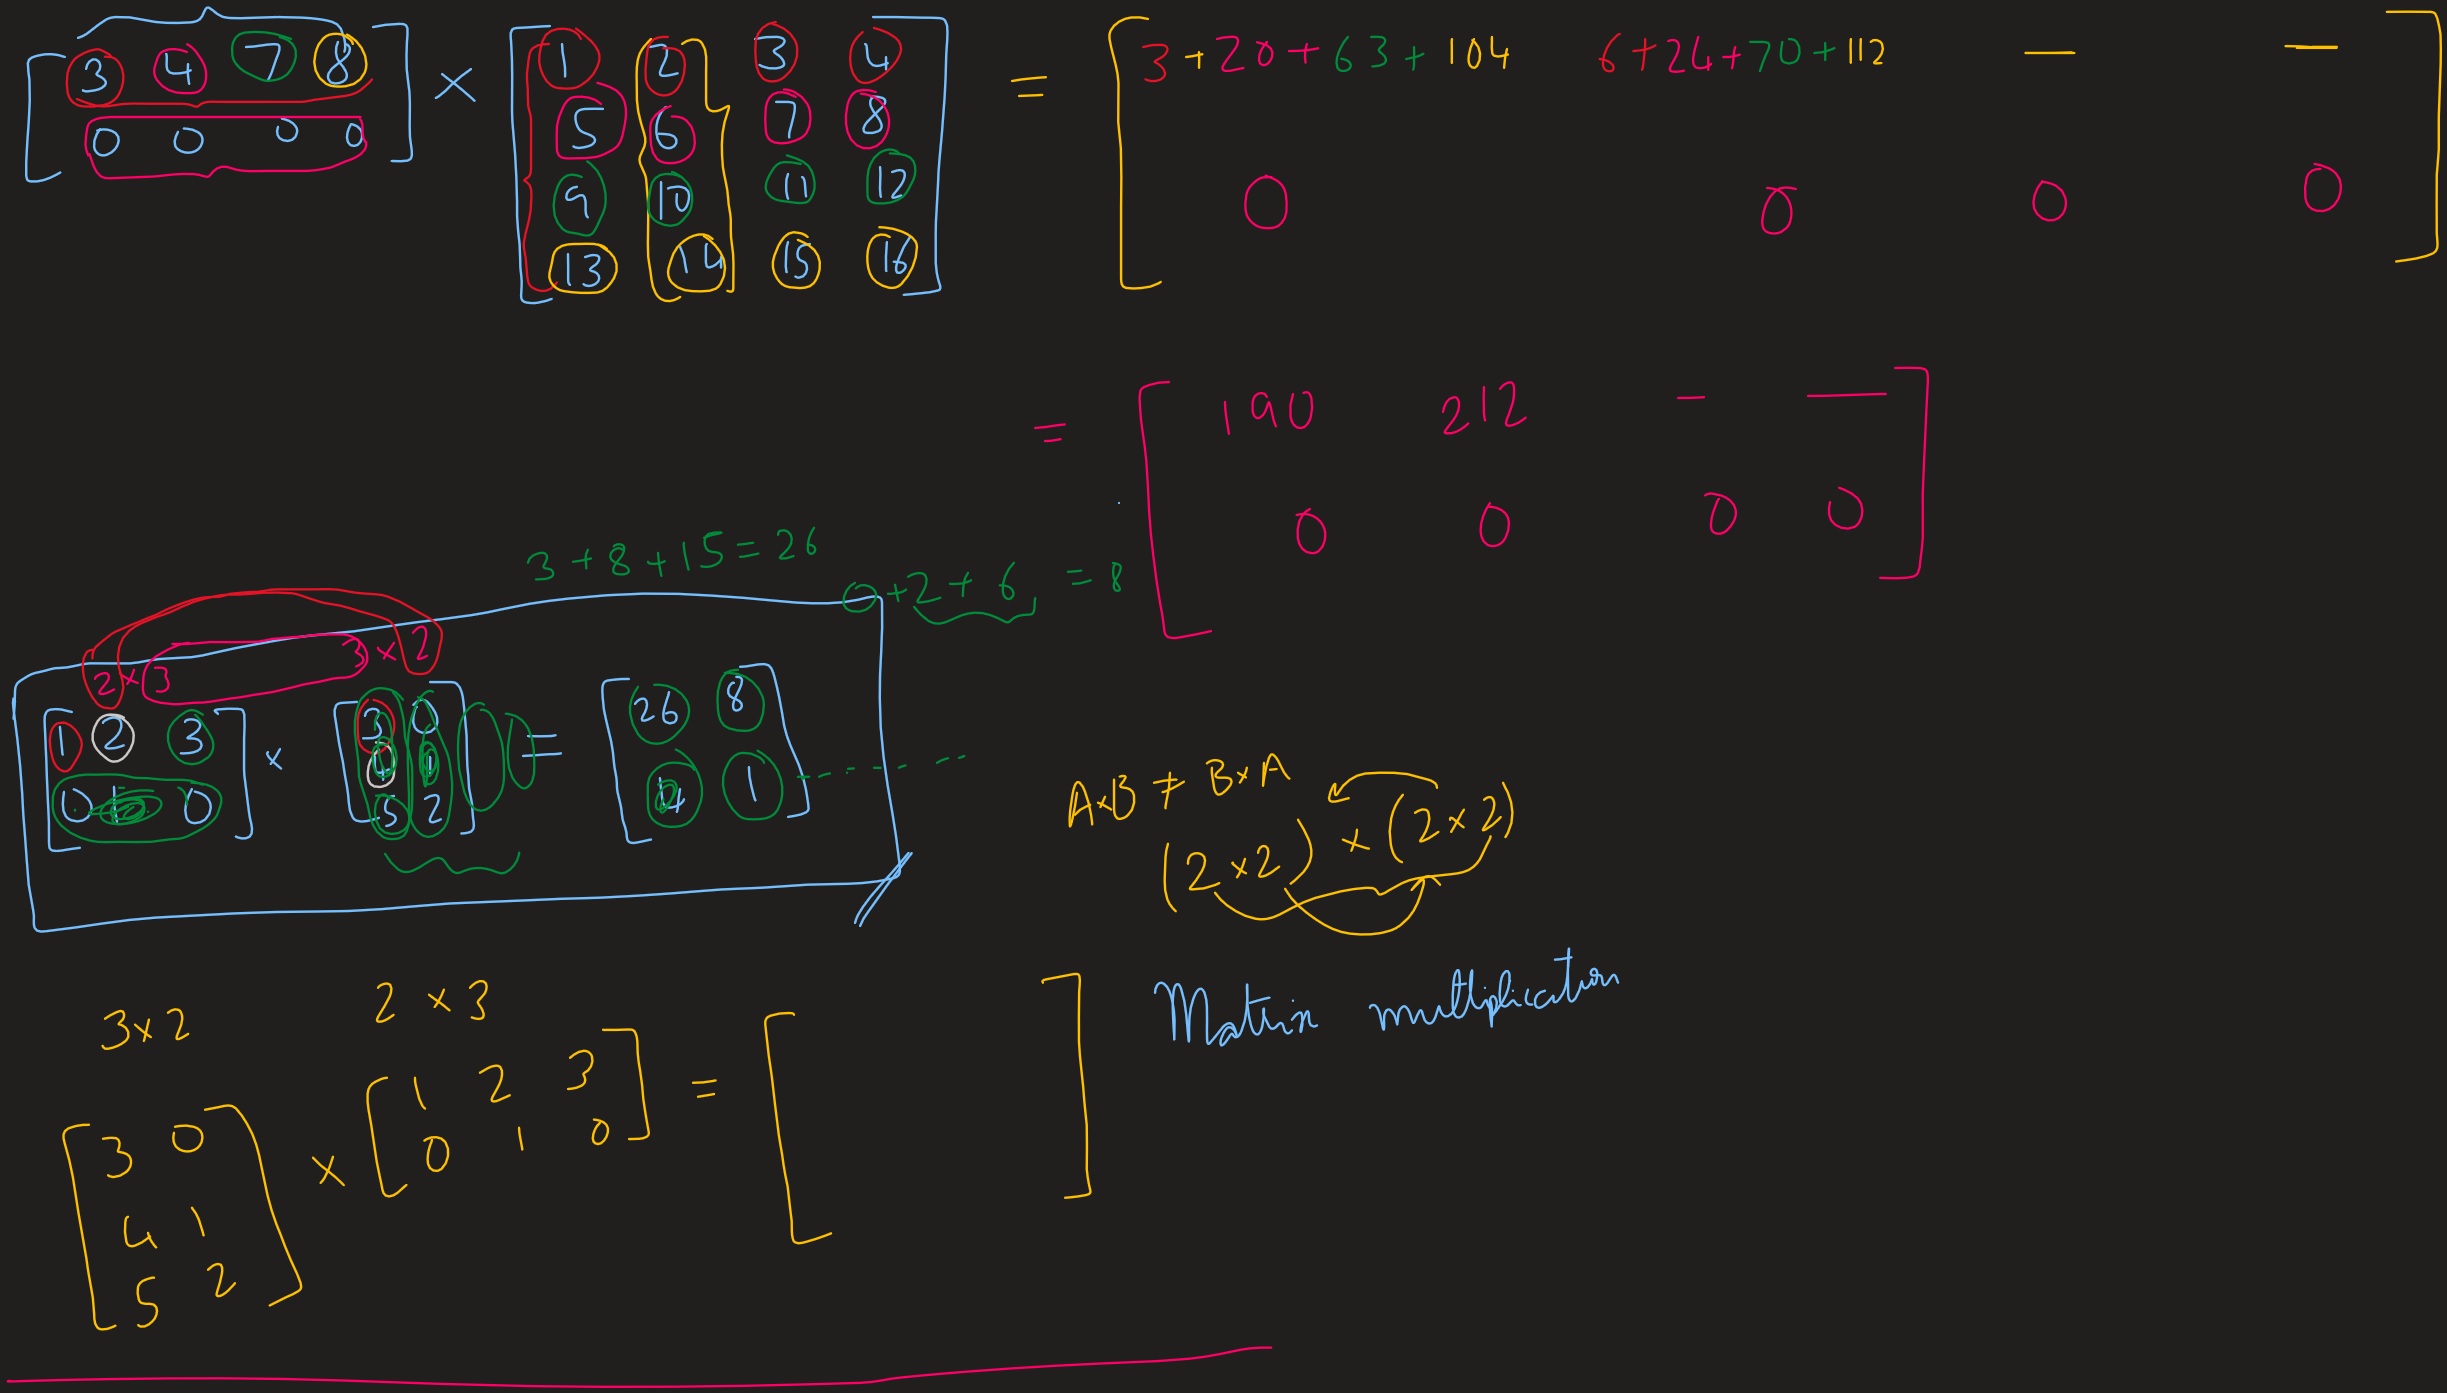 3 4 7 8
0 0 0 0
×
1 2 3 4
5 6 7 8
9 10 11 12
13 14 15 16
=
3 + 20 + 63 + 104 6 + 24 + 70 + 112 — —
0 0 0 0
= 190 212 - —
0 0 0 0
3 + 8 + 15 = 26
+ 2 + 6 = 8
2 × 3 3 × 2
1 2 3
0 0
×
3 0
5 2
=
26 8
4 1
A×B ≠ B×A
(2×2) × (2×2)
Matrix multiplication
3×2 2×3
3 0
4 1
5 2
×
1 2 3
0 1 0
=